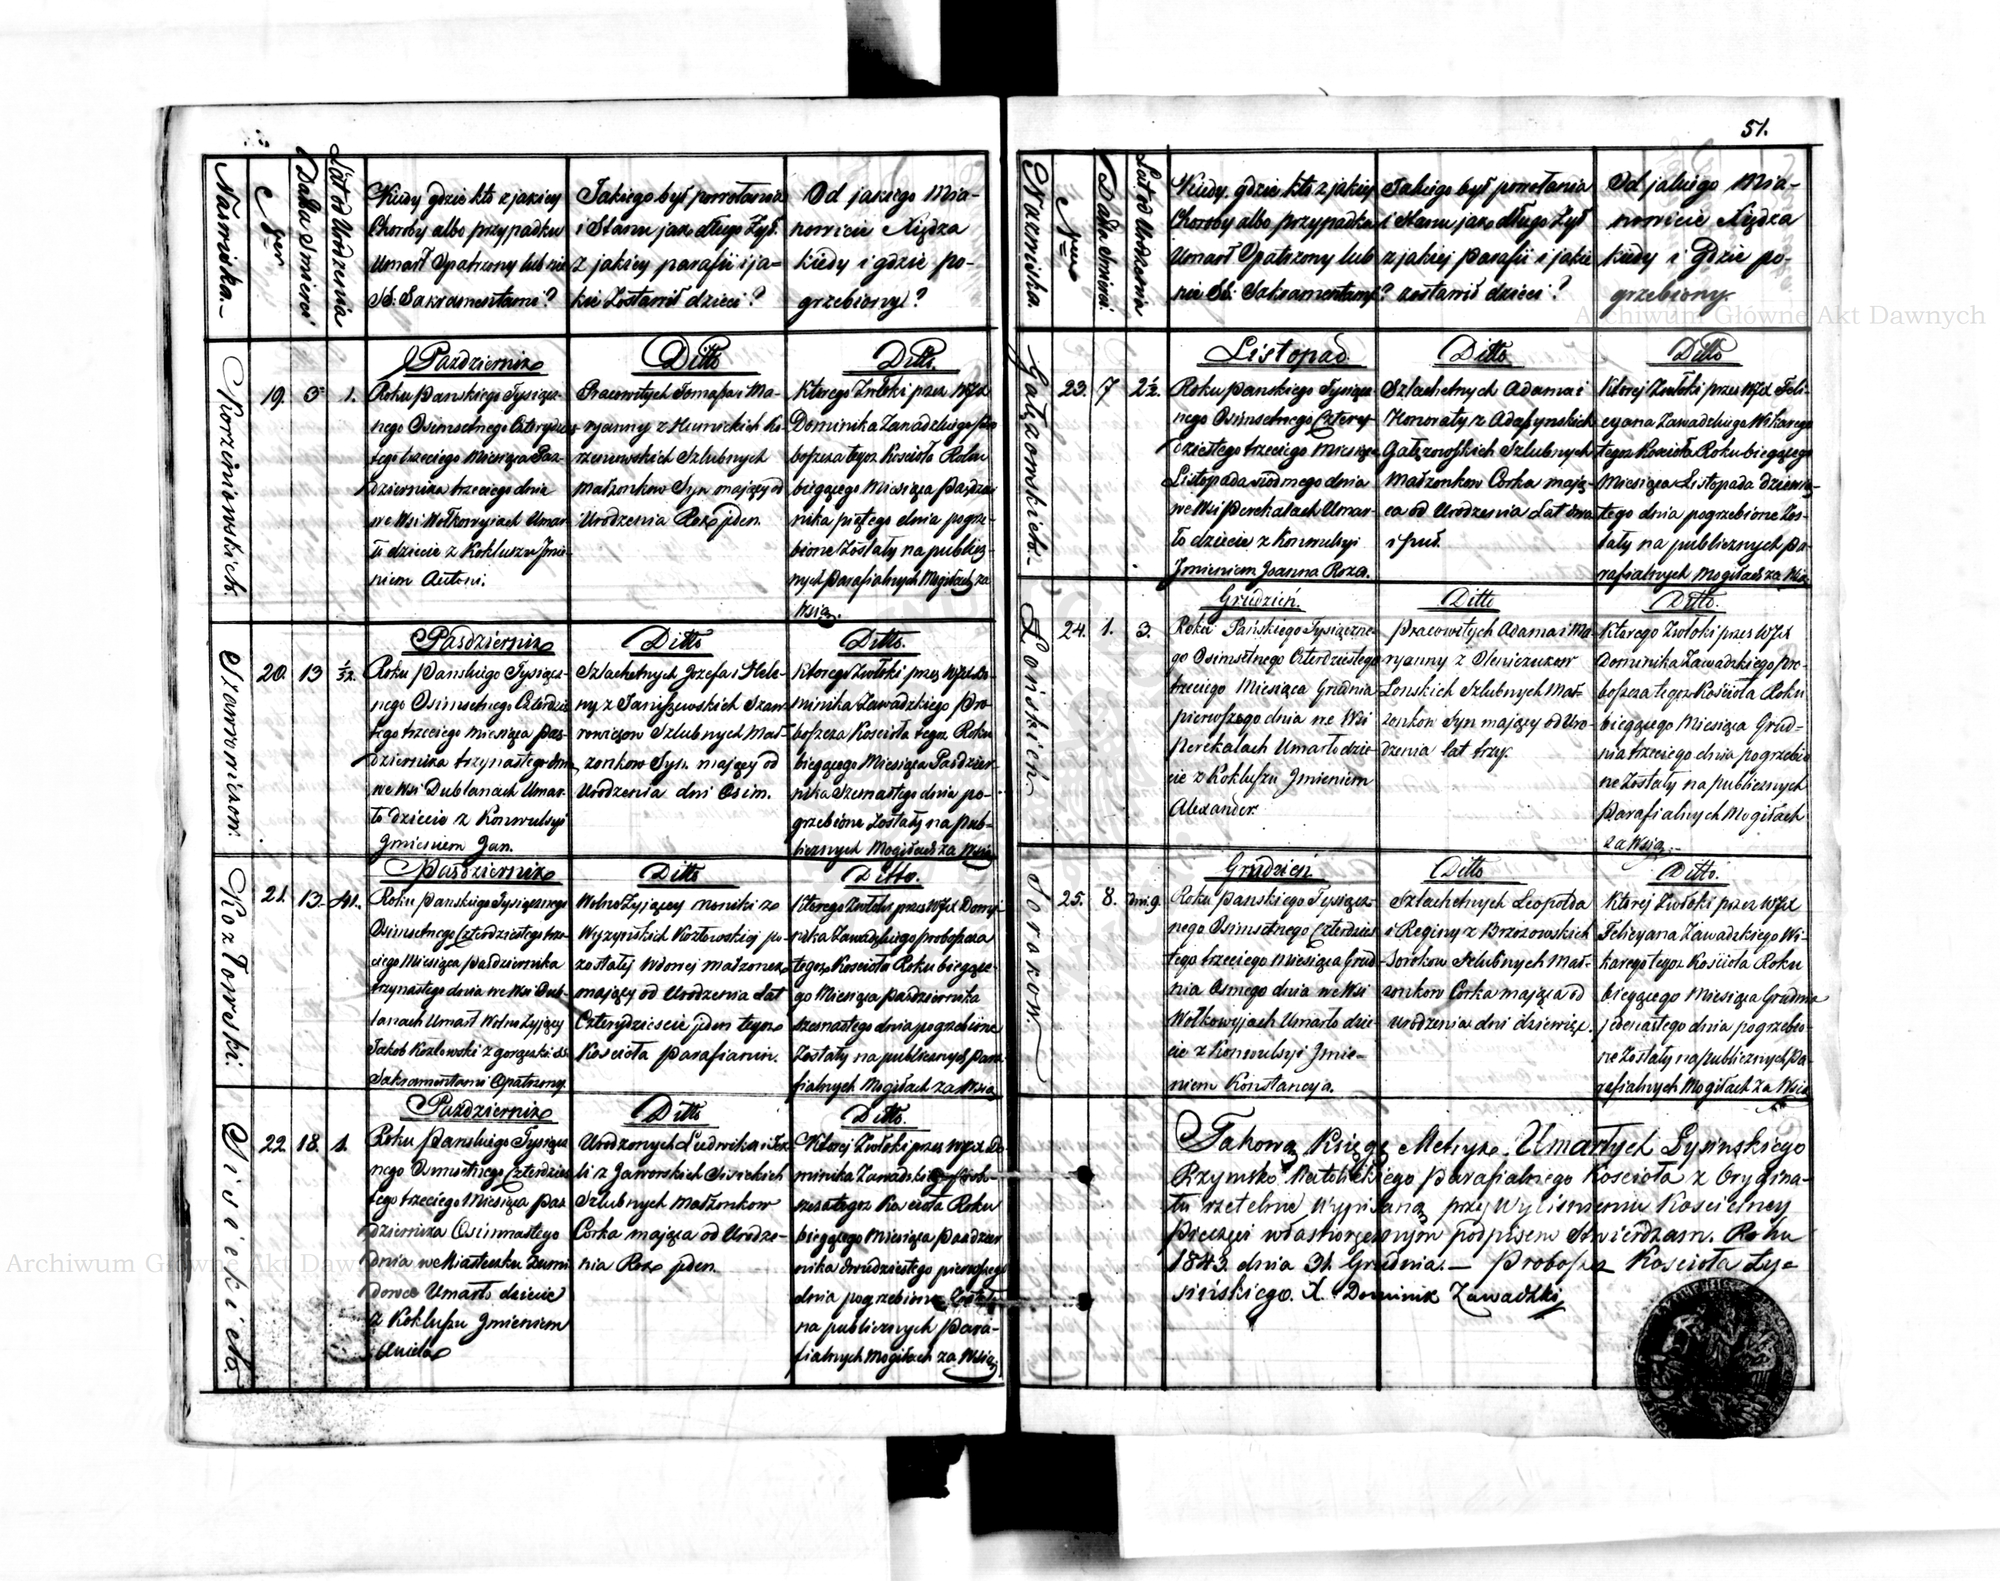 51.
Nazwiska.
Nuer
Datta Smierci
Lat od Urodzenia
Kiedy gdzie kto z jakiey
Choroby albo przypadku
Umarł Opatrzony lub nie
SS. Sakramentami?
Jakiego był powołania
i Stanu jak długo Żył.
Z jakiey parafii i ja-
kie Zostawił dzieci?
Od jakiego Mia-
nowicie Xiędza
kiedy i gdzie po-
grzebiony?
Korzeniewskich.
19. 3 1.
Październik
Roku Pańskiego Tysiącz-
nego Osimsetnego Czterydzies
tego trzeciego Miesiąca Paz-
dziernika trzeciego dnia
we Wsi Wołkowyjach Umar-
ło dziecie z Kokluszu Jmie-
niem Antoni.
Ditto
Pracowitych Tomasza i Ma-
ryanny z Humickich Ko-
rzeniewskich Szlubnych
Małżonkow Syn mający od
Urodzenia Rok jeden.
Ditto.
Ktorego Zwłoki przez WJX
Dominika Zawadzkiego Pro
boszcza tegoż Kościoła Roku
bieżącego Miesiąca Paździer
nika piątego dnia pogrze-
bione Zostały na publicz-
nych Parafialnych Mogiłach za
Wsią.
20. 13 8/32.
Październik
Roku Pańskiego Tysiącz-
nego Osimsetnego Czterdzies
tego trzeciego Miesiąca Paz-
dziernika trzynastego dnia
we Wsi Dublanach Umar-
ło dziecie z Konwulsyi
Jmieniem Jan.
Ditto
Szlachetnych Jozefa i Hele-
ny z Janiszewskich Szaw-
rowiczow Szlubnych Mał-
zonkow Syn mający od
Urodzenia dni Osim.
Ditto.
Ktorego Zwłoki przez WJX Do-
minika Zawadzkiego Pro
boszcza Kościoła tegoż Roku
bieżącego Miesiąca Paździer
nika Szesnastego dnia po-
grzebione Zostały na pub-
licznych Mogiłach za Wsią
Kozłowski.
21. 13. 41.
Październik
Roku Pańskiego Tysiącznego
Osimsetnego Czterdziestego trze-
ciego Miesiąca Października
trzynastego dnia we Wsi Dub-
lanach Umarł Wolno Żyjący
Jakob Kozłowski z gorączki SS.
Sakramentami Opatrzony.
Ditto
Wolno Żyjący
Wyżyńskich Kozłowskiej po-
zostałej Wdowej Małzonek
mający od Urodzenia Lat
Czterydzieście jeden tegoż
Kościoła Parafianin.
Ditto.
Ktorego Zwłoki przez WJX Domi-
nika Zawadzkiego proboszcza
tegoż Kościoła Roku bieżące-
go Miesiąca Października
szesnastego dnia pogrzebione
Zostały na publicznych Para
fialnych Mogiłach za Wsią
Sisickich.
22. 18. 1.
Październik
Roku Pańskiego Tysiącz
nego Osimsetnego Czterdzies
tego trzeciego Miesiąca Paz
dziernika Osimnastego
dnia we Miasteczku
Umarło dziecie
z Kokluszu Jmieniem
Aniela
Ditto
Urodzonych Ludwika i
z Jaworskich Sisickich
Szlubnych Małżonkow
Corka mająca od Urodze-
nia Rok jeden.
Ditto.
Ktorej Zwłoki przez WJX Do
minika Zawadzkiego Probo-
szcza tegoż Kościoła Roku
bieżącego Miesiąca Paździer
nika dwudziestego pierwszego
dnia pogrzebione Zostały
na publicznych Para-
fialnych Mogiłach za Wsią
Nazwiska.
Nuer
Datta Smierci.
Lat od Urodzenia
Kiedy gdzie kto z jakiey
Choroby albo przypadku
Umarł Opatrzony lub
nie SS. Sakramentamy?
Jakiego był powołania
i Stanu jako długo Żył
z jakiej Parafii i jakie
zostawił dzieci?
Od jakiego Mia-
nowicie Xiędza
kiedy i Gdzie po-
grzebiony.
23. 7 2½.
Listopad
Roku Pańskiego Tysiącz
nego Osimsetnego Cztery
dziestego trzeciego Miesiąca
Listopada siodmego dnia
we Wsi Perekalach Umar-
ło dziecie z Konwulsyi
Jmieniem Joanna Roza.
Ditto
Szlachetnych Adama i
Honoraty z Adaszynskich
Gałązowskich Szlubnych
Małżonkow Corka mają-
ca od Urodzenia Lat dwa
i puł.
Ditto
Ktorej Zwłoki przez WJX Feli-
cyana Zawadzkiego Wikarego
tegoż Kościoła Roku bieżącego
Miesiąca Listopada dziewią-
tego dnia pogrzebione Zos-
tały na publicznych Pa-
rafialnych Mogiłach za Wsią
Łońskich.
24. 1. 3.
Grudzień.
Roku Pańskiego Tysiączne-
go Osimsetnego Czterdziestego
trzeciego Miesiąca Grudnia
pierwszego dnia we Wsi
Perekalach Umarło dzie-
cie z Kokluszu Jmieniem
Alexander.
Ditto
Pracowitych Adama i Ma
ryanny z Oleniczukow
Łonskich Szlubnych Mał-
zonkow Syn mający od Uro-
dzenia lat trzy.
Ditto.
Ktorego Zwłoki przez WJX
Dominika Zawadzkiego Pro-
boszcza tegoż Kościoła Roku
bieżącego Miesiąca Grud-
nia trzeciego dnia pogrzebio
ne Zostały na publicznych
Parafialnych Mogiłach
za Wsią.
Sorokow.
25. 8. dni 9.
Grudzień
Roku Pańskiego Tysiącz-
nego Osimsetnego Czterdzies
tego trzeciego Miesiąca Grud-
nia Osmego dnia we Wsi
Wołkowyjach Umarło dzie-
cie z Konwulsyi Jmie-
niem Konstancya.
Ditto
Szlachetnych Leopolda
i Reginy z Brzozowskich
Sorokow Szlubnych Mał-
zonkow Corka mająca od
urodzenia dni dziewięć.
Ditto.
Ktorej Zwłoki przez WJX
Felicyana Zawadzkiego Wi-
karego tegoż Kościoła Roku
bieżącego Miesiąca Grudnia
jedenastego dnia pogrzebio-
ne Zostały na publicznych Pa-
rafialnych Mogiłach za Wsią
Takową Księgę Metryk Umarłych Łysińskiego
Rzymsko Katolickiego Parafialnego Kościoła z Orygina-
łu rzetelnie Wypisaną przy Wyciśnieniu Kościelney
Pieczęci własnoręcznym podpisem stwierdzam. Roku
1843. dnia 31. Grudnia. — Proboszcz Kościoła Ły-
sińskiego. X. Dominik Zawadzki
Archiwum Główne Akt Dawnych
Archiwum Główne Akt Dawnych